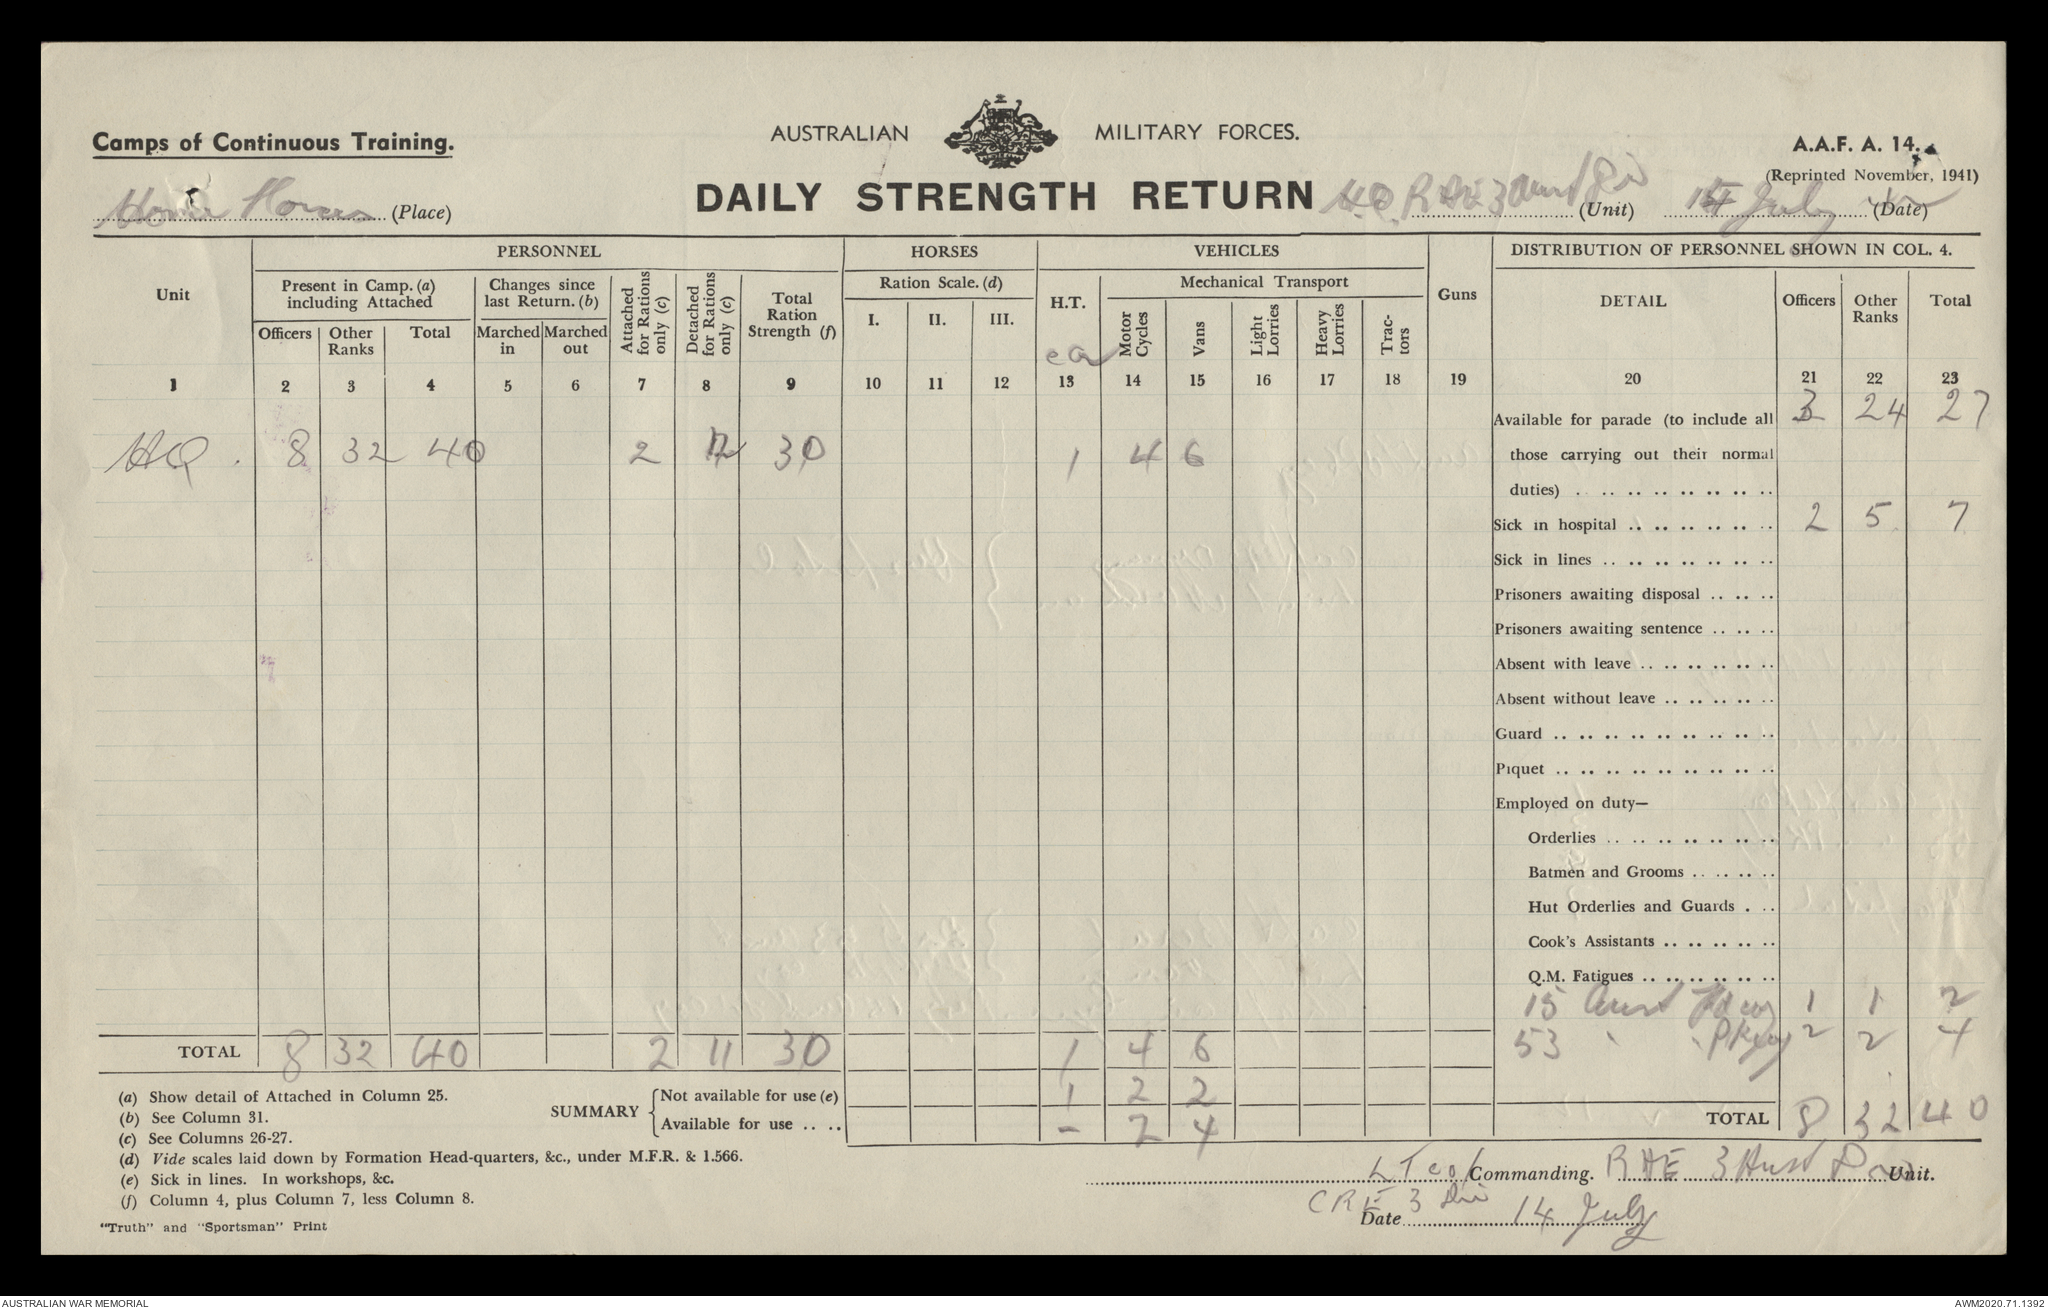 Camps of Continuous Training.
AUSTRALIAN MILITARY FORCES.
A.A.F. A. 14.
(Reprinted November, 1941)
(Place)
DAILY STRENGTH RETURN
H.Q. R A E 3 Aust Div (Unit)
14 July (Date)
Unit
PERSONNEL
HORSES
VEHICLES
Guns
DISTRIBUTION OF PERSONNEL SHOWN IN COL. 4.
Present in Camp. (a) including Attached
Changes since last Return. (b)
Attached for Rations only (c)
Detached for Rations only (c)
Total Ration Strength (f)
Ration Scale. (d)
H.T.
Mechanical Transport
DETAIL
Officers
Other Ranks
Total
Officers
Other Ranks
Total
Marched in
Marched out
I.
II.
III.
Motor Cycles
Vans
Light Lorries
Heavy Lorries
Trac-tors
1 2 3 4 5 6 7 8 9 10 11 12 13 14 15 16 17 18 19 20 21 22 23
HQ . 8 32 40 2 30 1 4 6
Available for parade (to include all 3 24 27
those carrying out their normal
duties) . .. .. .. .. .. .. ..
Sick in hospital .. .. .. .. .. .. 2 5 7
Sick in lines .. .. .. .. .. .. ..
Prisoners awaiting disposal .. .. ..
Prisoners awaiting sentence .. .. ..
Absent with leave .. .. .. .. .. ..
Absent without leave .. .. .. .. ..
Guard .. .. .. .. .. .. .. .. ..
Piquet .. .. .. .. .. .. .. .. ..
Employed on duty—
Orderlies .. .. .. .. .. .. ..
Batmen and Grooms .. .. .. ..
Hut Orderlies and Guards . ..
Cook's Assistants .. .. .. .. ..
Q.M. Fatigues .. .. .. .. .. ..
15 Aust 1 1 2
53 " 2 2 4
TOTAL 8 32 40 2 11 30 1 4 6
SUMMARY
Not available for use (e) 1 2 2
Available for use .. .. – 2 4
TOTAL 8 32 40
(a) Show detail of Attached in Column 25.
(b) See Column 31.
(c) See Columns 26-27.
(d) Vide scales laid down by Formation Head-quarters, &c., under M.F.R. & 1.566.
(e) Sick in lines. In workshops, &c.
(f) Column 4, plus Column 7, less Column 8.
"Truth" and "Sportsman" Print
LT col Commanding. RAE 3 Aust Div Unit.
CRE 3 Div
Date 14 July
AUSTRALIAN WAR MEMORIAL
AWM2020.71.1392